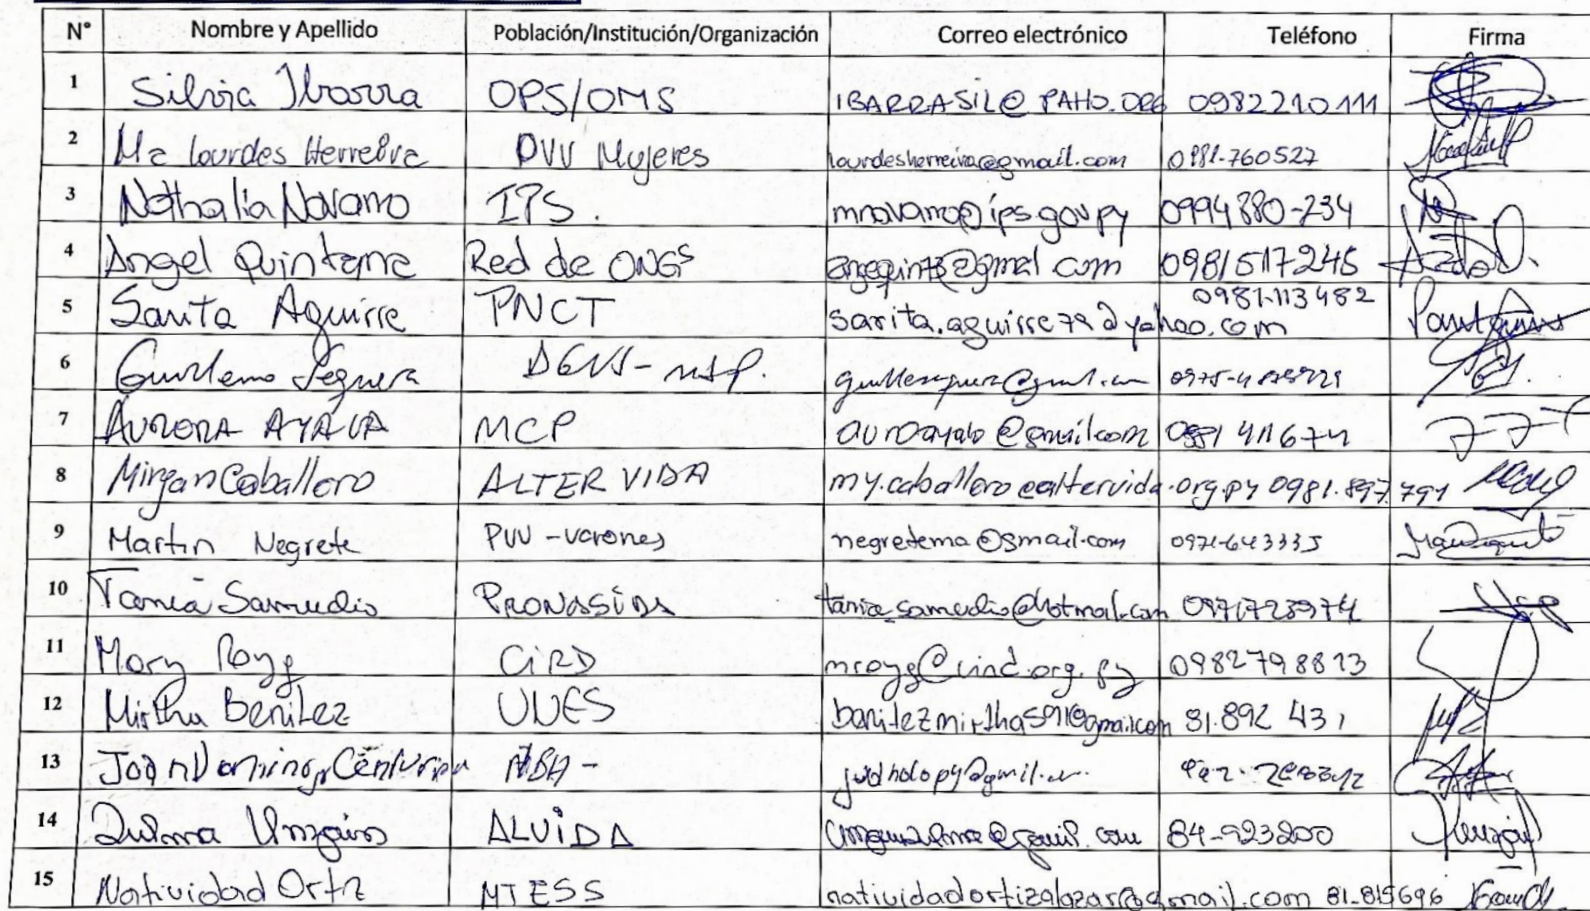 N° Nombre y Apellido Población/Institución/Organización Correo electrónico Teléfono Firma
1 Silvia Ibarra OPS/OMS IBARRASIL@PAHO.ORG 0982210111
2 Ma lourdes Herreira PVV Mujeres lourdesherreira@gmail.com 0981-760527
3 Nathalia Navarro IPS. mnavarro@ips.gov.py 0994880-234
4 Angel Quintana Red de ONGs angequint73@gmal com 0981517245
5 Sarita Aguirre PNCT sarita.aguirre79@yahoo.com 0981.113482
6 Guillermo Sequera
7 AURORA AYALA MCP auroayala@gmail.com 0981 411674
8 Miryan Caballero ALTER VIDA my.caballero@altervida.org.py 0981.897.791
9 Martin Negrete PVV-varones negretema@gmail.com 0971-643335
10 Tania Samudio PRONASSIDA tania_samudio@hotmail.com 0971723974
11 Mary Royg CiRD mroyg@cird.org.py 0982798813
12 Mirtha Benitez UNES benitezmirtha591@gmail.com 81.892 431
13 Centurion
14 Zulma Unzain ALVIDA 84-923200
15 Natividad Ortiz MTESS natividadortizalazar@gmail.com 81-815696